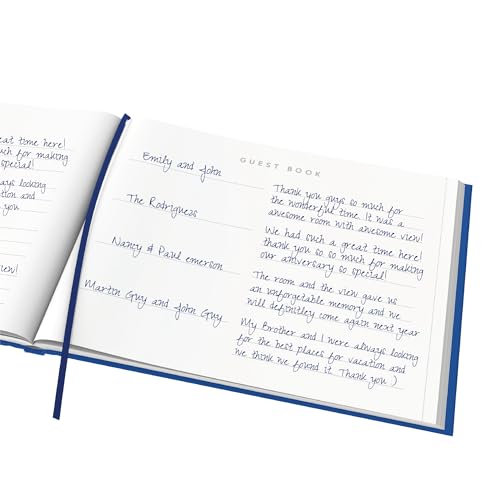 eat time here!
uch for making
special!
ays looking
ation and
you
iew!
GUEST BOOK
Emily and John
Thank you guys so much for
the wonderful time. It was a
awesome room with awesome view!
The Rodriguess
We had such a great time here!
thank you so so much for making
our aniversary so special!
Nancy & Paul emerson
The room and the view gave us
an unforgetable memory and we
will definitley come again next year
Martin Guy and John Guy
My Brother and I were always looking
for the best places for vacation and
we think we found it Thank you :)